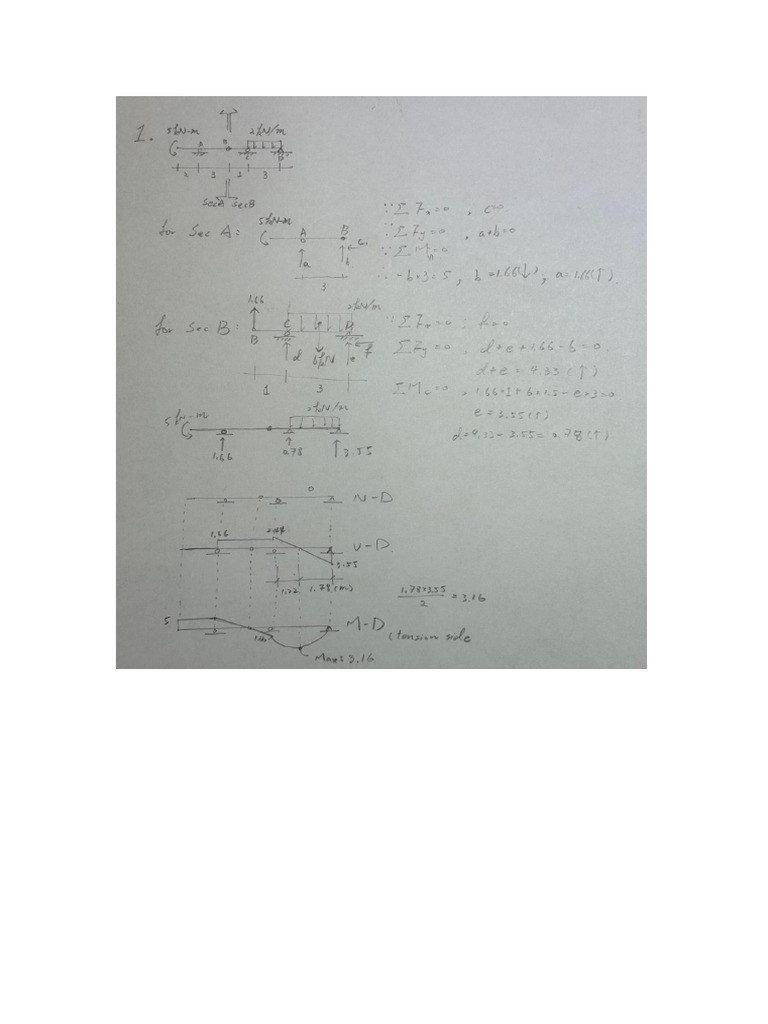 1.
5kN-m A B 2kN/m C D
2 3 1 3
secA secB
for Sec A: 5kN-m A B c
a b
3
∵ΣFx=0 , c=0.
∵ΣFy=0 , a+b=0
∵ΣMA=0
∴ -b×3=5, b=1.66(↓), a=1.66(↑).
for Sec B: 1.66 B C D 2kN/m
d 6kN e f
1 3
∵ΣFx=0 , f=0
ΣFy=0 , d+e+1.66-6=0.
d+e = 4.33(↑)
ΣMc=0 , 1.66×1+6×1.5-e×3=0
e=3.55(↑)
d=4.33-3.55=0.78(↑)
5kN-m 2kN/m
1.66 0.78 3.55
0 N-D
1.66 2.44 V-D.
3.55
1.22 1.78(m)
1.78×3.55/2 = 3.16
5 M-D
(tension side
1.66
Max=3.16